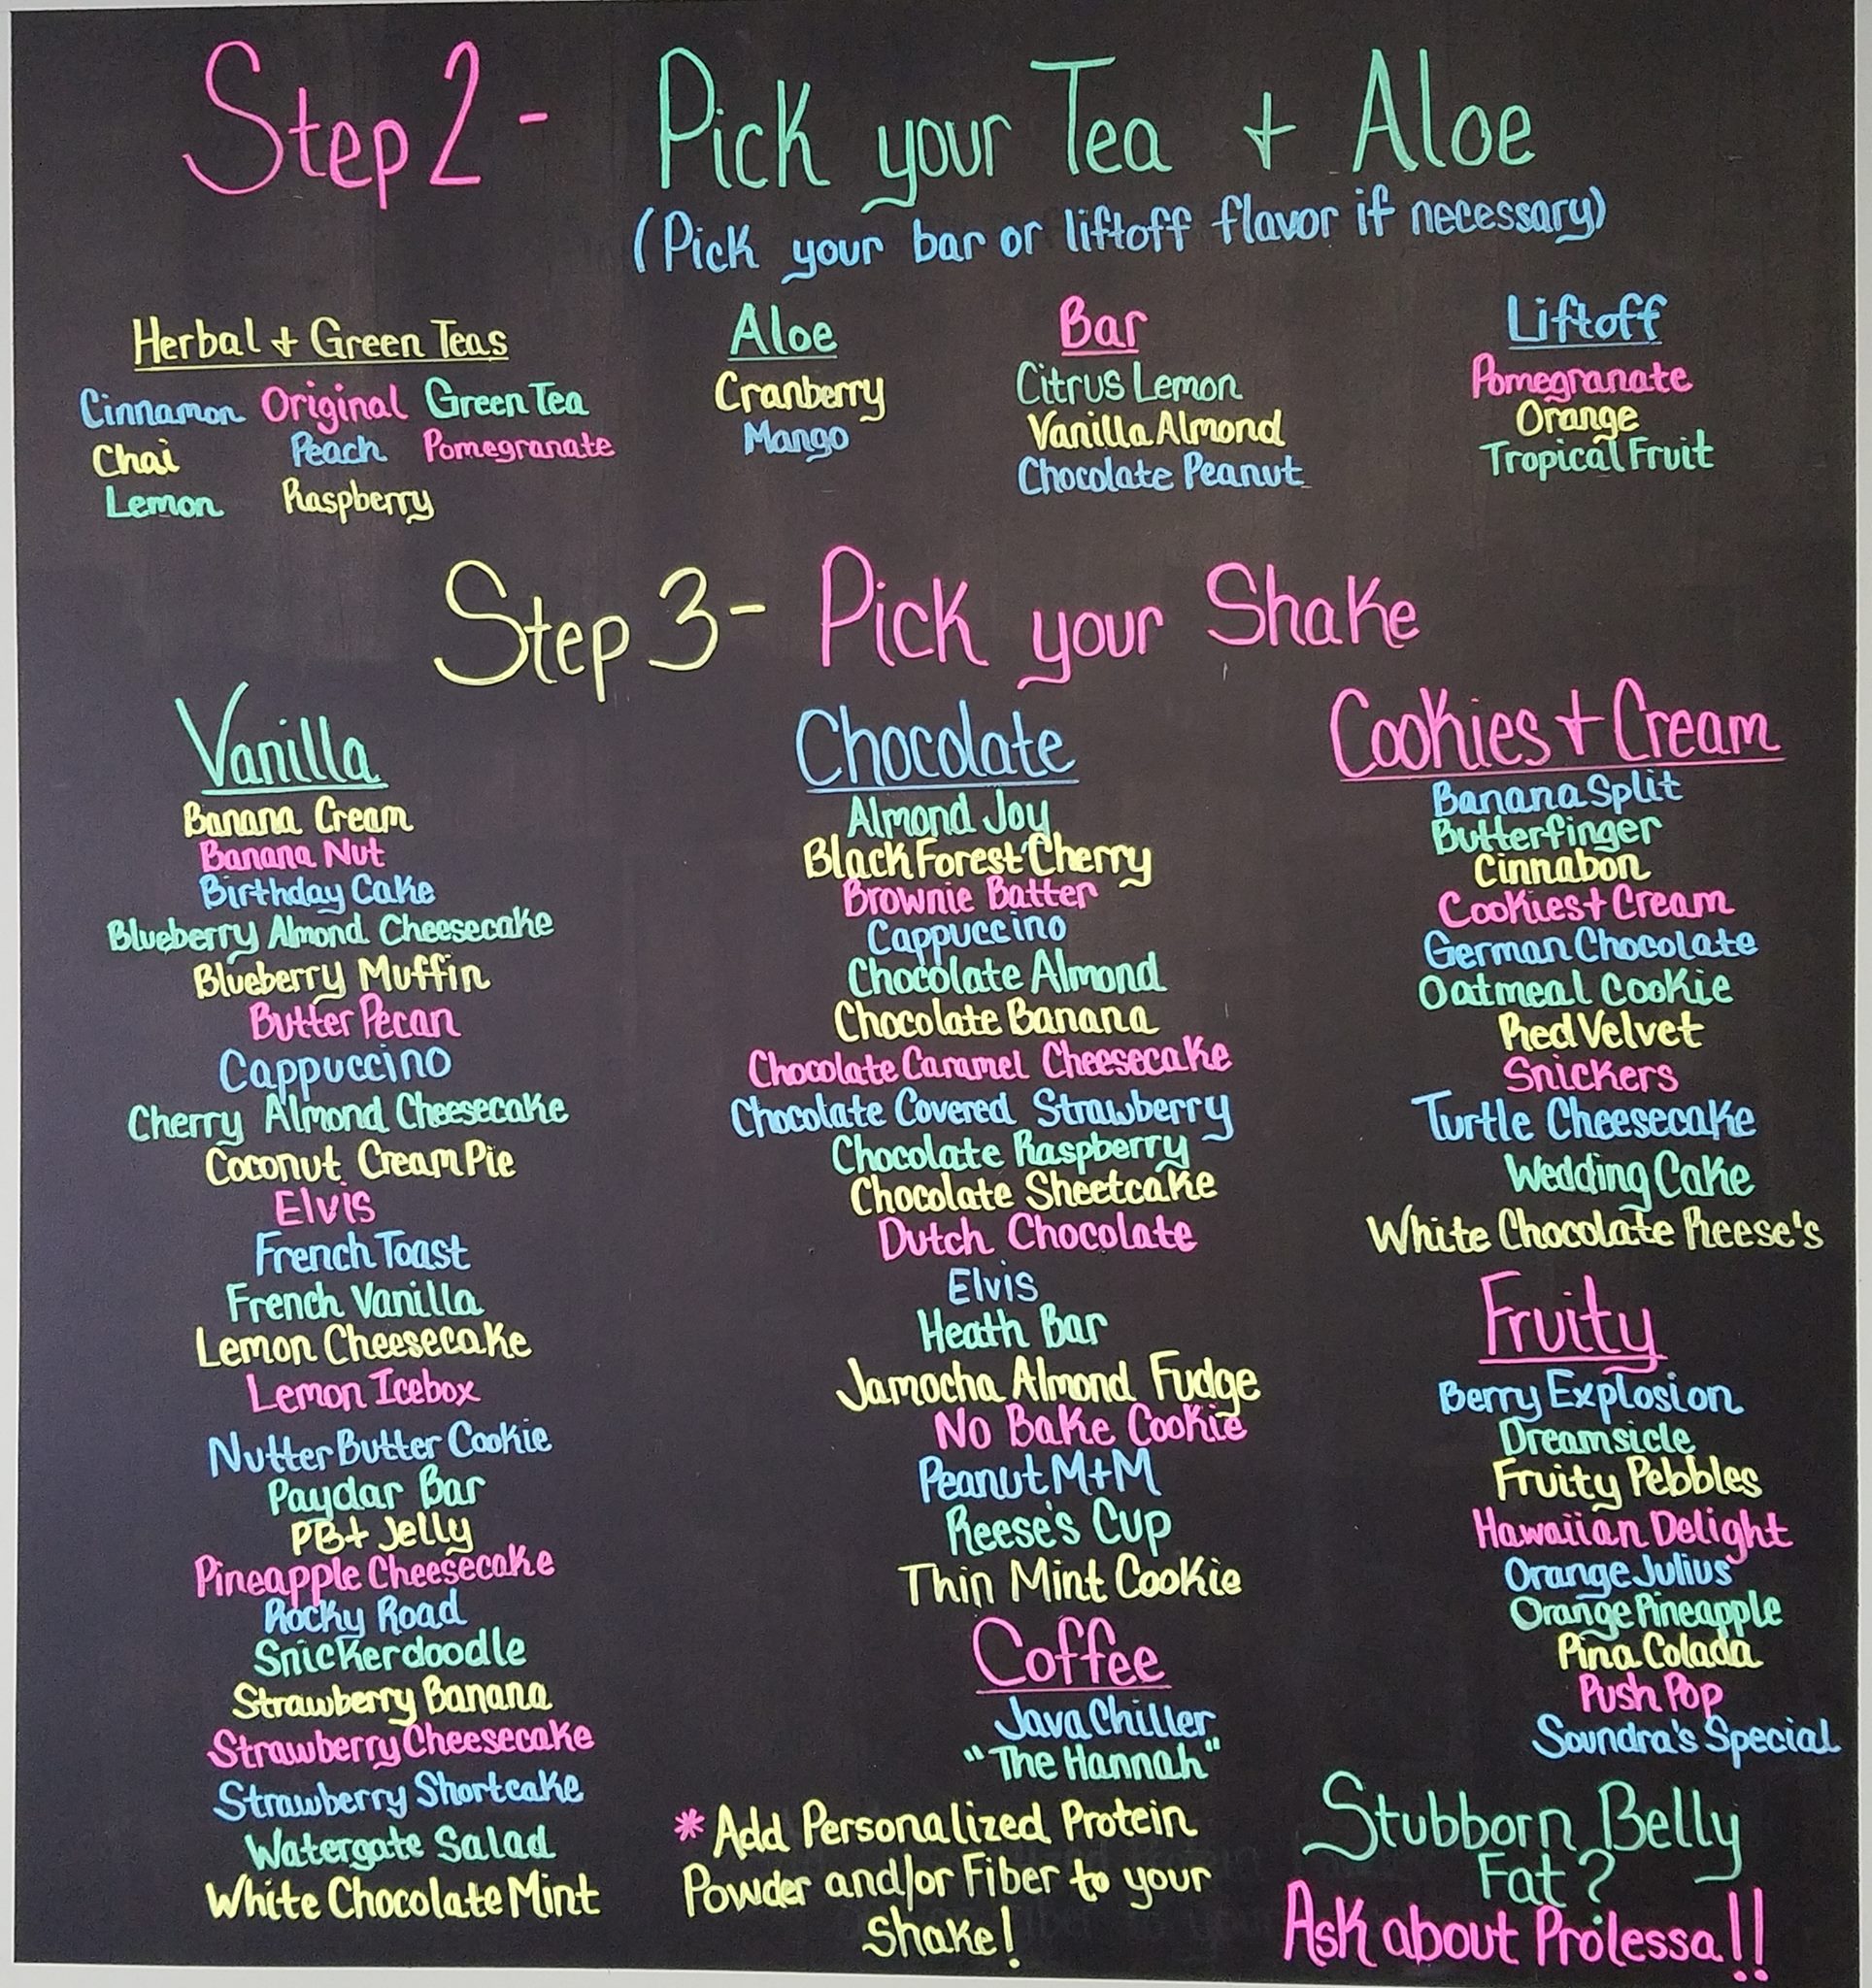 Step 2 - Pick your Tea + Aloe
(Pick your bar or liftoff flavor if necessary)
Herbal + Green Teas
Cinnamon Original Green Tea
Chai Peach Pomegranate
Lemon Raspberry
Aloe
Cranberry
Mango
Bar
Citrus Lemon
Vanilla Almond
Chocolate Peanut
Liftoff
Pomegranate
Orange
Tropical Fruit
Step 3 - Pick your Shake
Vanilla
Banana Cream
Banana Nut
Birthday Cake
Blueberry Almond Cheesecake
Blueberry Muffin
Butter Pecan
Cappuccino
Cherry Almond Cheesecake
Coconut Cream Pie
Elvis
French Toast
French Vanilla
Lemon Cheesecake
Lemon Icebox
Nutter Butter Cookie
Paydar Bar
PB + Jelly
Pineapple Cheesecake
Rocky Road
Snickerdoodle
Strawberry Banana
Strawberry Cheesecake
Strawberry Shortcake
Watergate Salad
White Chocolate Mint
Chocolate
Almond Joy
Black Forest Cherry
Brownie Batter
Cappuccino
Chocolate Almond
Chocolate Banana
Chocolate Caramel Cheesecake
Chocolate Covered Strawberry
Chocolate Raspberry
Chocolate Sheetcake
Dutch Chocolate
Elvis
Heath Bar
Jamocha Almond Fudge
No Bake Cookie
Peanut M+M
Reese's Cup
Thin Mint Cookie
Coffee
Java Chiller
"The Hannah"
* Add Personalized Protein
Powder and/or Fiber to your
Shake!
Cookies + Cream
Banana Split
Butterfinger
Cinnabon
Cookies + Cream
German Chocolate
Oatmeal Cookie
Red Velvet
Snickers
Turtle Cheesecake
Wedding Cake
White Chocolate Reese's
Fruity
Berry Explosion
Dreamsicle
Fruity Pebbles
Hawaiian Delight
Orange Julius
Orange Pineapple
Pina Colada
Push Pop
Soundra's Special
Stubborn Belly
Fat?
Ask about Prolessa!!